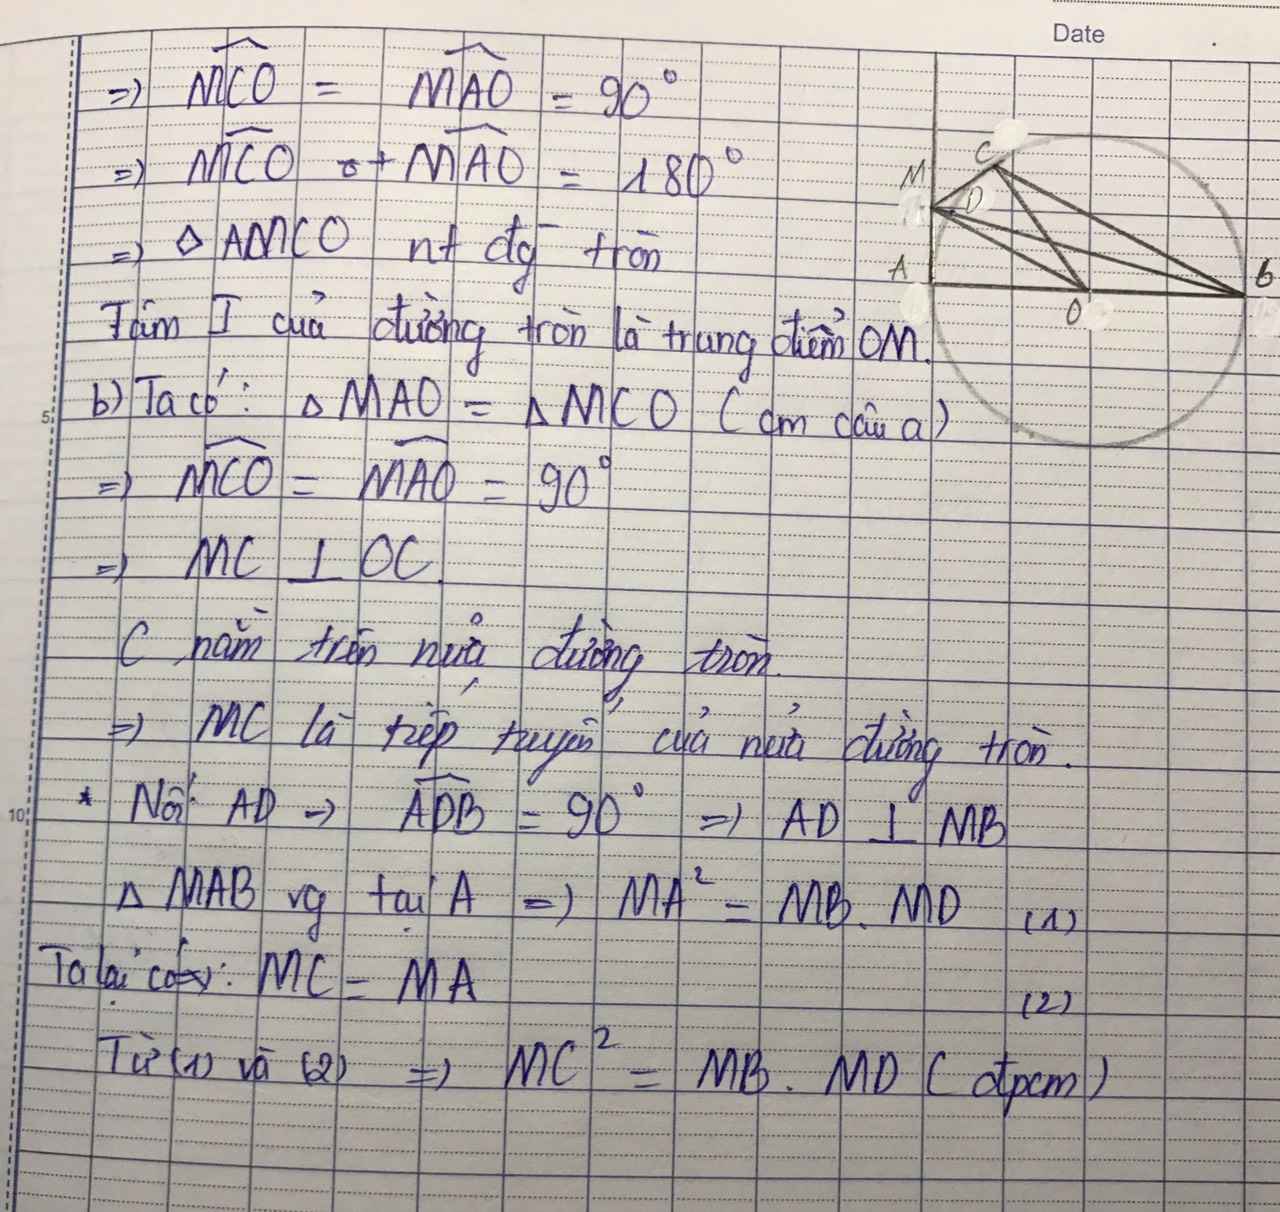 Date
=) MCO = MAO = 90°
=) MCO + MAO = 180°
=) Δ AMCO nt đg tròn
Tâm I của đường tròn là trung điểm OM.
b) Ta có: Δ MAO = Δ MCO (cm câu a)
5
=) MCO = MAO = 90°
=) MC ⊥ OC
C nằm trên nửa đường tròn.
=) MC là tiếp tuyến của nửa đường tròn.
* Nối AD =) ADB = 90° =) AD ⊥ MB
10
Δ MAB vg tại A =) MA² = MB. MD (1)
Ta lại có: MC = MA (2)
Từ (1) và (2) =) MC² = MB. MD (đpcm)
M
C
D
A
O
B